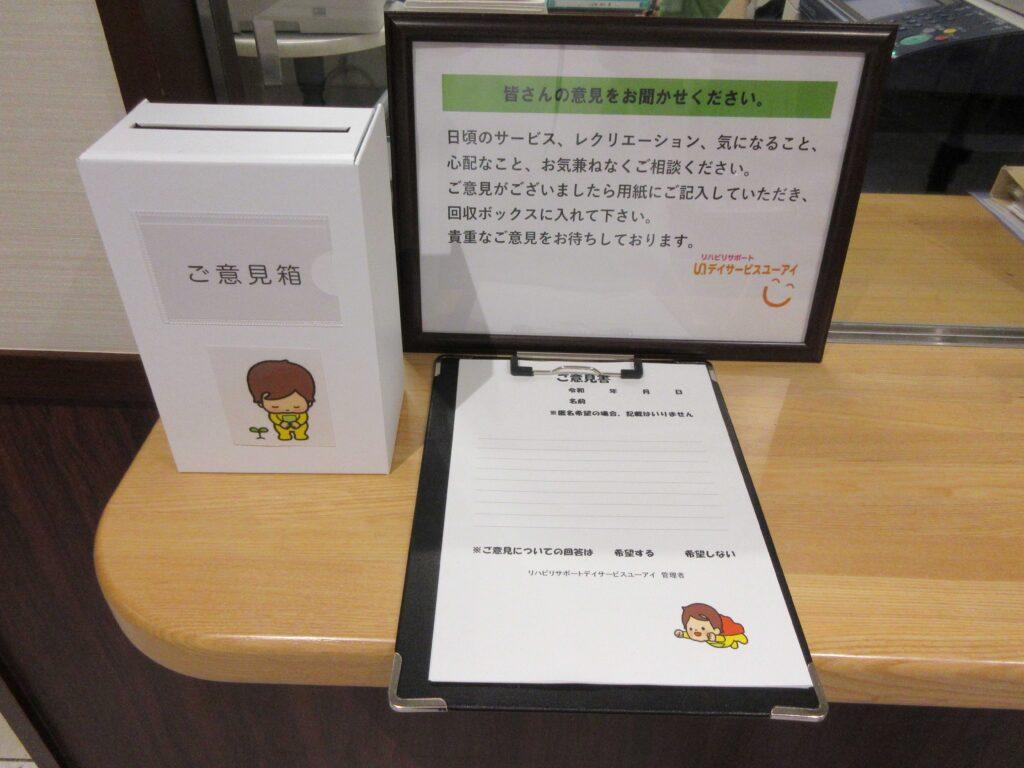 ご意見箱
皆さんの意見をお聞かせください。
日頃のサービス、レクリエーション、気になること、
心配なこと、お気兼ねなくご相談ください。
ご意見がございましたら用紙にご記入していただき、
回収ボックスに入れて下さい。
貴重なご意見をお待ちしております。
リハビリサポート
デイサービスユーアイ
ご意見書
令和 年 月 日
名前
※匿名希望の場合、記載はいりません
※ご意見についての回答は 希望する 希望しない
リハビリサポートデイサービスユーアイ 管理者